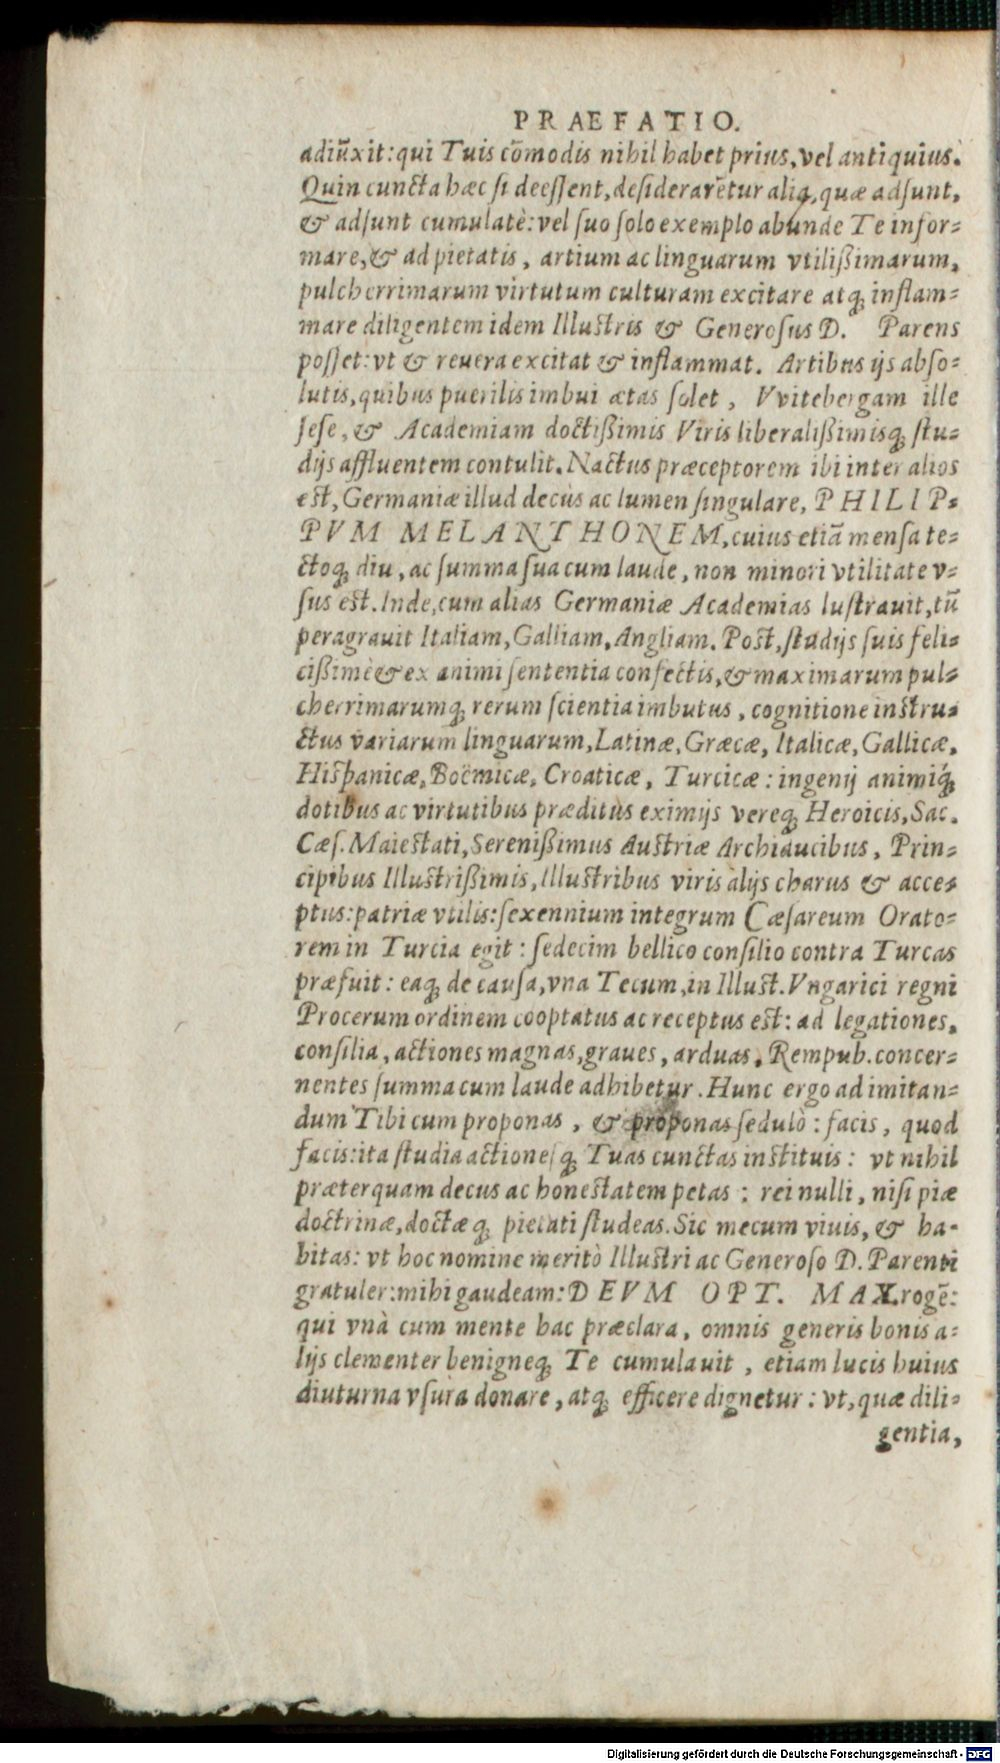 PRAEFATIO.
adiũxit: qui Tuis cõmodis nihil habet prius, vel antiquius.
Quin cuncta hæc si deeſſent, deſiderarẽtur aliq̃, quæ adſunt,
& adſunt cumulatè: vel ſuo ſolo exemplo abunde Te infor-
mare, & ad pietatis, artium ac linguarum vtilißimarum,
pulcherrimarum virtutum culturam excitare atq; inflam-
mare diligentem idem Illuſtris & Generoſus D. Parens
poſſet: vt & reuera excitat & inflammat. Artibus ijs abſo-
lutis, quibus puerilis imbui ætas ſolet, Vvitebergam ille
ſeſe, & Academiam doctißimis Viris liberalißimisq; ſtu-
dijs affluentem contulit. Nactus præceptorem ibi inter alios
eſt, Germaniæ illud decus ac lumen ſingulare, PHILIP-
PVM MELANTHONEM, cuius etiã menſa te-
ctoq; diu, ac ſumma ſua cum laude, non minori vtilitate v-
ſus eſt. Inde, cum alias Germaniæ Academias luſtrauit, tũ
peragrauit Italiam, Galliam, Angliam. Poſt, ſtudijs ſuis feli-
cißimè & ex animi ſententia confectis, & maximarum pul-
cherrimarumq; rerum ſcientia imbutus, cognitione inſtru-
ctus variarum linguarum, Latinæ, Græcæ, Italicæ, Gallicæ,
Hiſpanicæ, Boëmicæ, Croaticæ, Turcicæ: ingenij animiq́;
dotibus ac virtutibus præditus eximijs vereq; Heroicis, Sac.
Cæſ. Maieſtati, Serenißimus Auſtriæ Archiducibus, Prin-
cipibus Illuſtrißimis, Illuſtribus viris alijs charus & acce-
ptus: patriæ vtilis: ſexennium integrum Cæſareum Orato-
rem in Turcia egit: ſedecim bellico conſilio contra Turcas
præfuit: eaq; de cauſa, vna Tecum, in Illuſt. Vngarici regni
Procerum ordinem cooptatus ac receptus eſt: ad legationes,
conſilia, actiones magnas, graues, arduas, Rempub. concer-
nentes ſumma cum laude adhibetur. Hunc ergo ad imitan-
dum Tibi cum proponas, & proponas ſedulò: facis, quod
facis: ita ſtudia actioneſq; Tuas cunctas inſtituis: vt nihil
præterquam decus ac honeſtatem petas: rei nulli, niſi piæ
doctrinæ, doctæq; pietati ſtudeas. Sic mecum viuis, & ha-
bitas: vt hoc nomine meritò Illuſtri ac Generoſo D. Parenti
gratuler: mihi gaudeam: DEVM OPT. MAX. rogẽ:
qui vnà cum mente hac præclara, omnis generis bonis a-
lijs clementer benigneq; Te cumulauit, etiam lucis huius
diuturna vſura donare, atq; efficere dignetur: vt, quæ dili-
gentia,
Digitalisierung gefördert durch die Deutsche Forschungsgemeinschaft - DFG